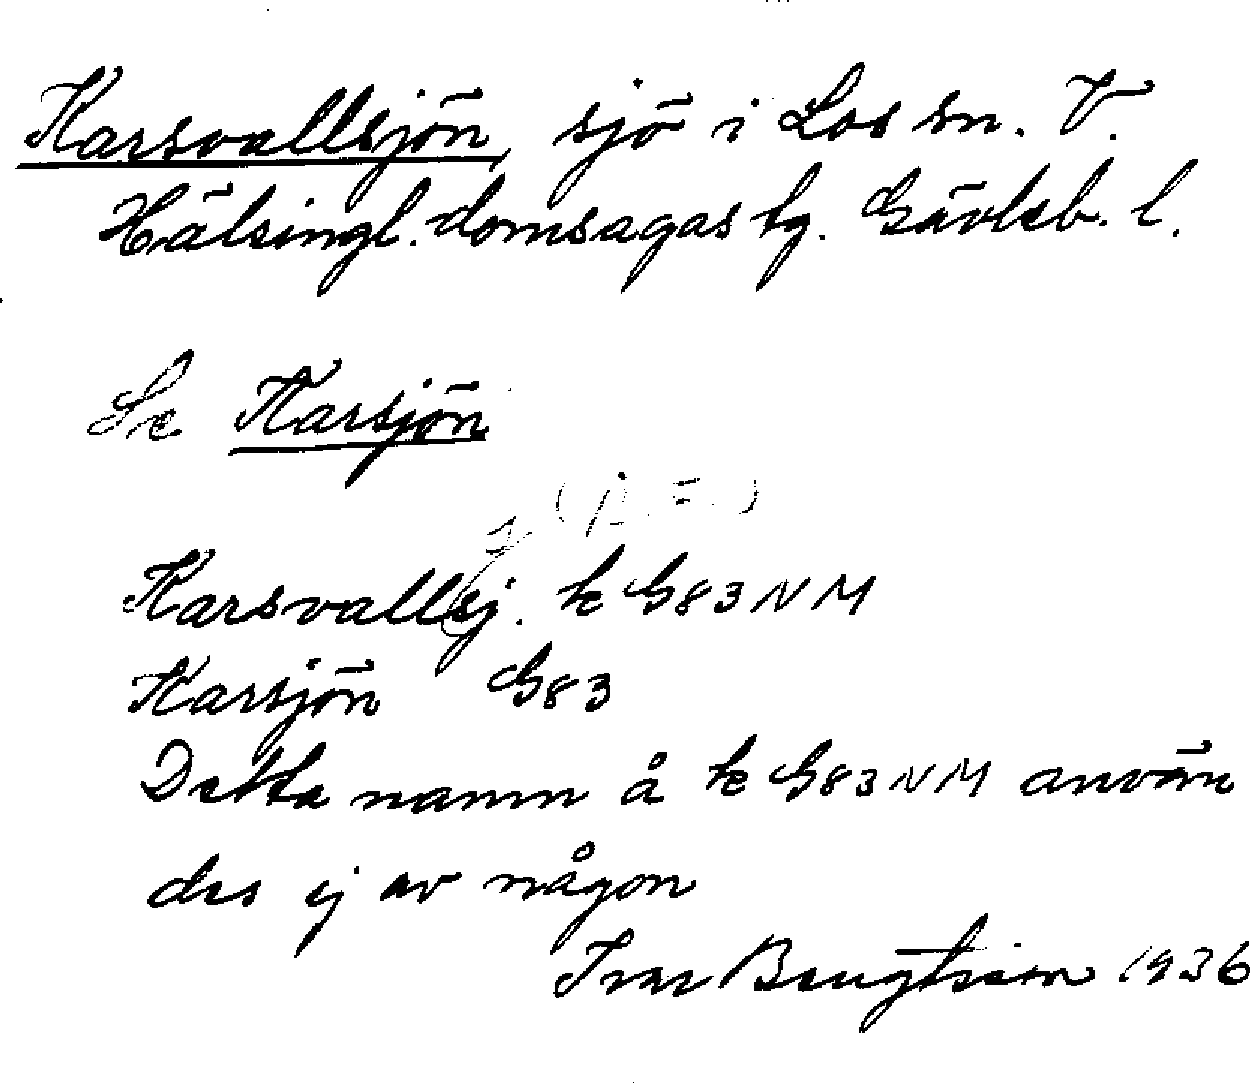 Karsvallsjön, sjö i Los sn. V.
Hälsingl. domsagas tg. Gävleb. l.
Se Karsjön
Karsvallsj. k G83NM
Karsjön G83
Detta namn å k G83NM använ
des ej av någon
Ivar Bengtsson 1936